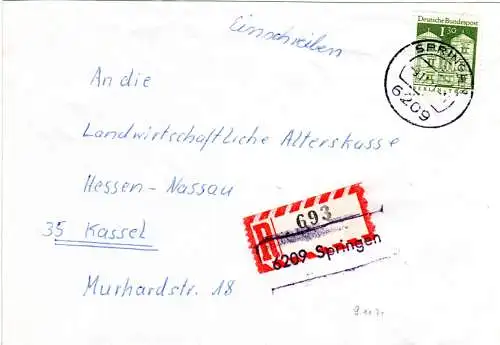 Einschreiben
Deutsche Bundespost
130
SPRINGEN
6209
An die
Landwirtschaftliche Alterskasse
Hessen-Nassau
35 Kassel
Murhardstr. 18
R
693
6209 Springen